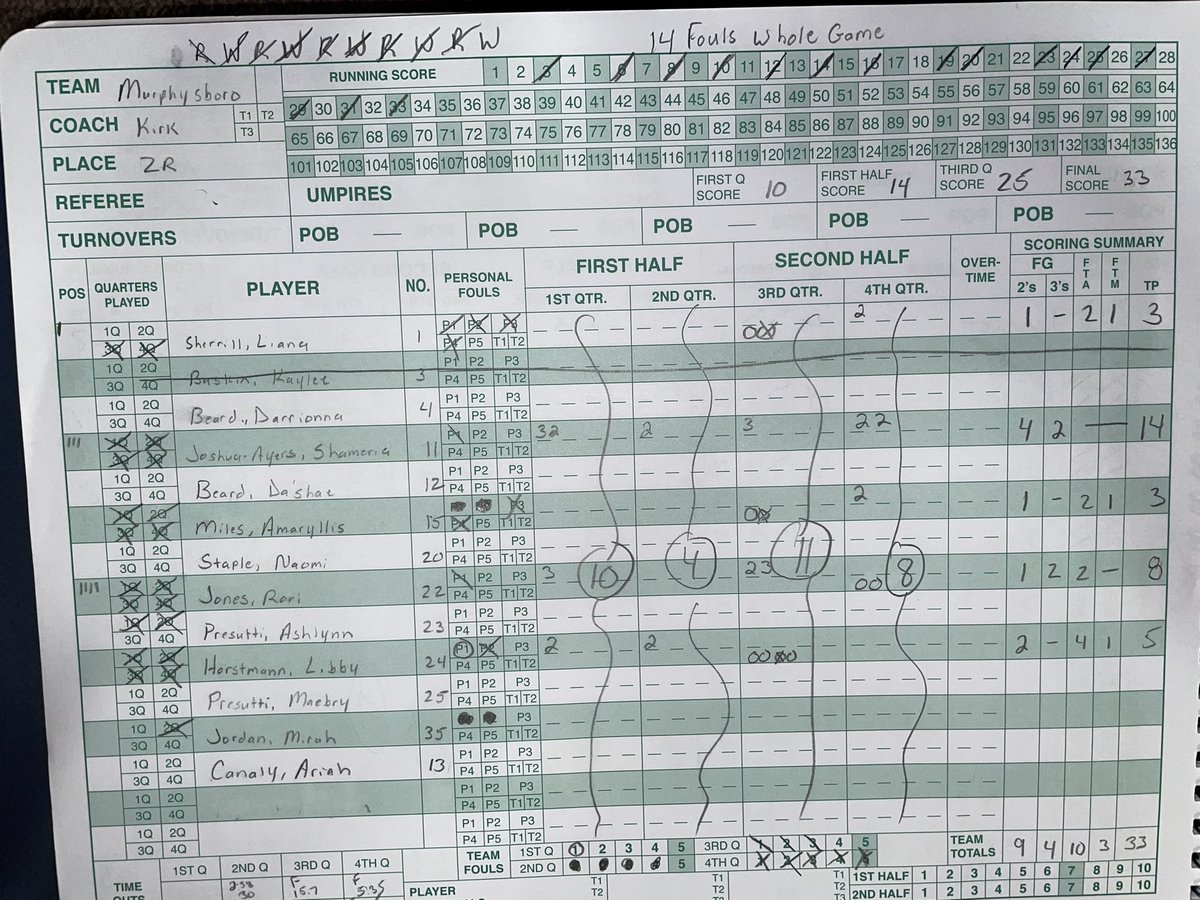 R W R W R W R W R W 14 Fouls Whole Game
TEAM Murphysboro RUNNING SCORE 1 2 3 4 5 6 7 8 9 10 11 12 13 14 15 16 17 18 19 20 21 22 23 24 25 26 27 28
29 30 31 32 33 34 35 36 37 38 39 40 41 42 43 44 45 46 47 48 49 50 51 52 53 54 55 56 57 58 59 60 61 62 63 64
COACH Kirk T1 T2 T3 65 66 67 68 69 70 71 72 73 74 75 76 77 78 79 80 81 82 83 84 85 86 87 88 89 90 91 92 93 94 95 96 97 98 99 100
PLACE ZR 101 102 103 104 105 106 107 108 109 110 111 112 113 114 115 116 117 118 119 120 121 122 123 124 125 126 127 128 129 130 131 132 133 134 135 136
REFEREE UMPIRES FIRST Q SCORE 10 FIRST HALF SCORE 14 THIRD Q SCORE 25 FINAL SCORE 33
TURNOVERS POB — POB — POB — POB — POB —
POS QUARTERS PLAYED PLAYER NO. PERSONAL FOULS FIRST HALF SECOND HALF OVER-TIME SCORING SUMMARY
1ST QTR. 2ND QTR. 3RD QTR. 4TH QTR. FG 2's 3's FTA FTM TP
1Q 2Q P1 P2 P3 2 1 - 2 1 3
3Q 4Q Sherrill, Liana 1 P4 P5 T1 T2
1Q 2Q P1 P2 P3
3Q 4Q Baskin, Kaylee 3 P4 P5 T1 T2
1Q 2Q P1 P2 P3
3Q 4Q Beard, Darrionna 4 P4 P5 T1 T2
1Q 2Q P1 P2 P3 32 2 3 22 4 2 — 14
3Q 4Q Joshua-Ayers, Shameria 11 P4 P5 T1 T2
1Q 2Q P1 P2 P3
3Q 4Q Beard, Da'shae 12 P4 P5 T1 T2
1Q 2Q P3 2 1 - 2 1 3
3Q 4Q Miles, Amaryllis 15 P4 P5 T1 T2
1Q 2Q P1 P2 P3
3Q 4Q Staple, Naomi 20 P4 P5 T1 T2 10 4 11 8
1Q 2Q P1 P2 P3 3 23 1 2 2 - 8
3Q 4Q Jones, Rori 22 P4 P5 T1 T2 00
1Q 2Q P1 P2 P3
3Q 4Q Presutti, Ashlynn 23 P4 P5 T1 T2
1Q 2Q P1 P2 P3 2 2 2 - 4 1 5
3Q 4Q Horstmann, Libby 24 P4 P5 T1 T2
1Q 2Q P1 P2 P3
3Q 4Q Presutti, Maebry 25 P4 P5 T1 T2
1Q 2Q P3
3Q 4Q Jordan, Mirah 35 P4 P5 T1 T2
1Q 2Q P1 P2 P3
3Q 4Q Canaly, Ariah 13 P4 P5 T1 T2
1Q 2Q P1 P2 P3
3Q 4Q P4 P5 T1 T2
1Q 2Q P1 P2 P3
3Q 4Q P4 P5 T1 T2
TEAM FOULS 1ST Q 1 2 3 4 5 3RD Q 1 2 3 4 5 TEAM TOTALS 9 4 10 3 33
2ND Q 5 4TH Q
TIME OUTS 1ST Q 2ND Q 3RD Q 4TH Q PLAYER T1 T2 T1 T2 T1 T2 T3 1ST HALF 1 2 3 4 5 6 7 8 9 10
2ND HALF 1 2 3 4 5 6 7 8 9 10